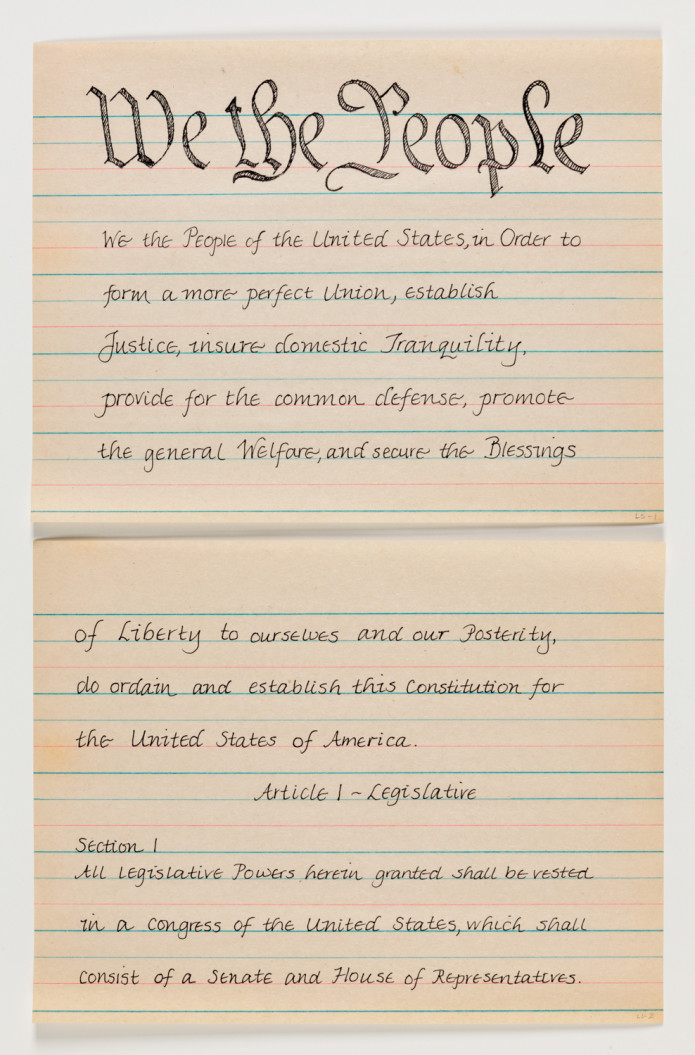 We the People
We the People of the United States, in Order to
form a more perfect Union, establish
Justice, insure domestic Tranquility,
provide for the common defense, promote
the general Welfare, and secure the Blessings
LS-1
of Liberty to ourselves and our Posterity,
do ordain and establish this Constitution for
the United States of America.
Article I ~ Legislative
Section I
All Legislative Powers herein granted shall be vested
in a Congress of the United States, which shall
consist of a Senate and House of Representatives.
LS-2